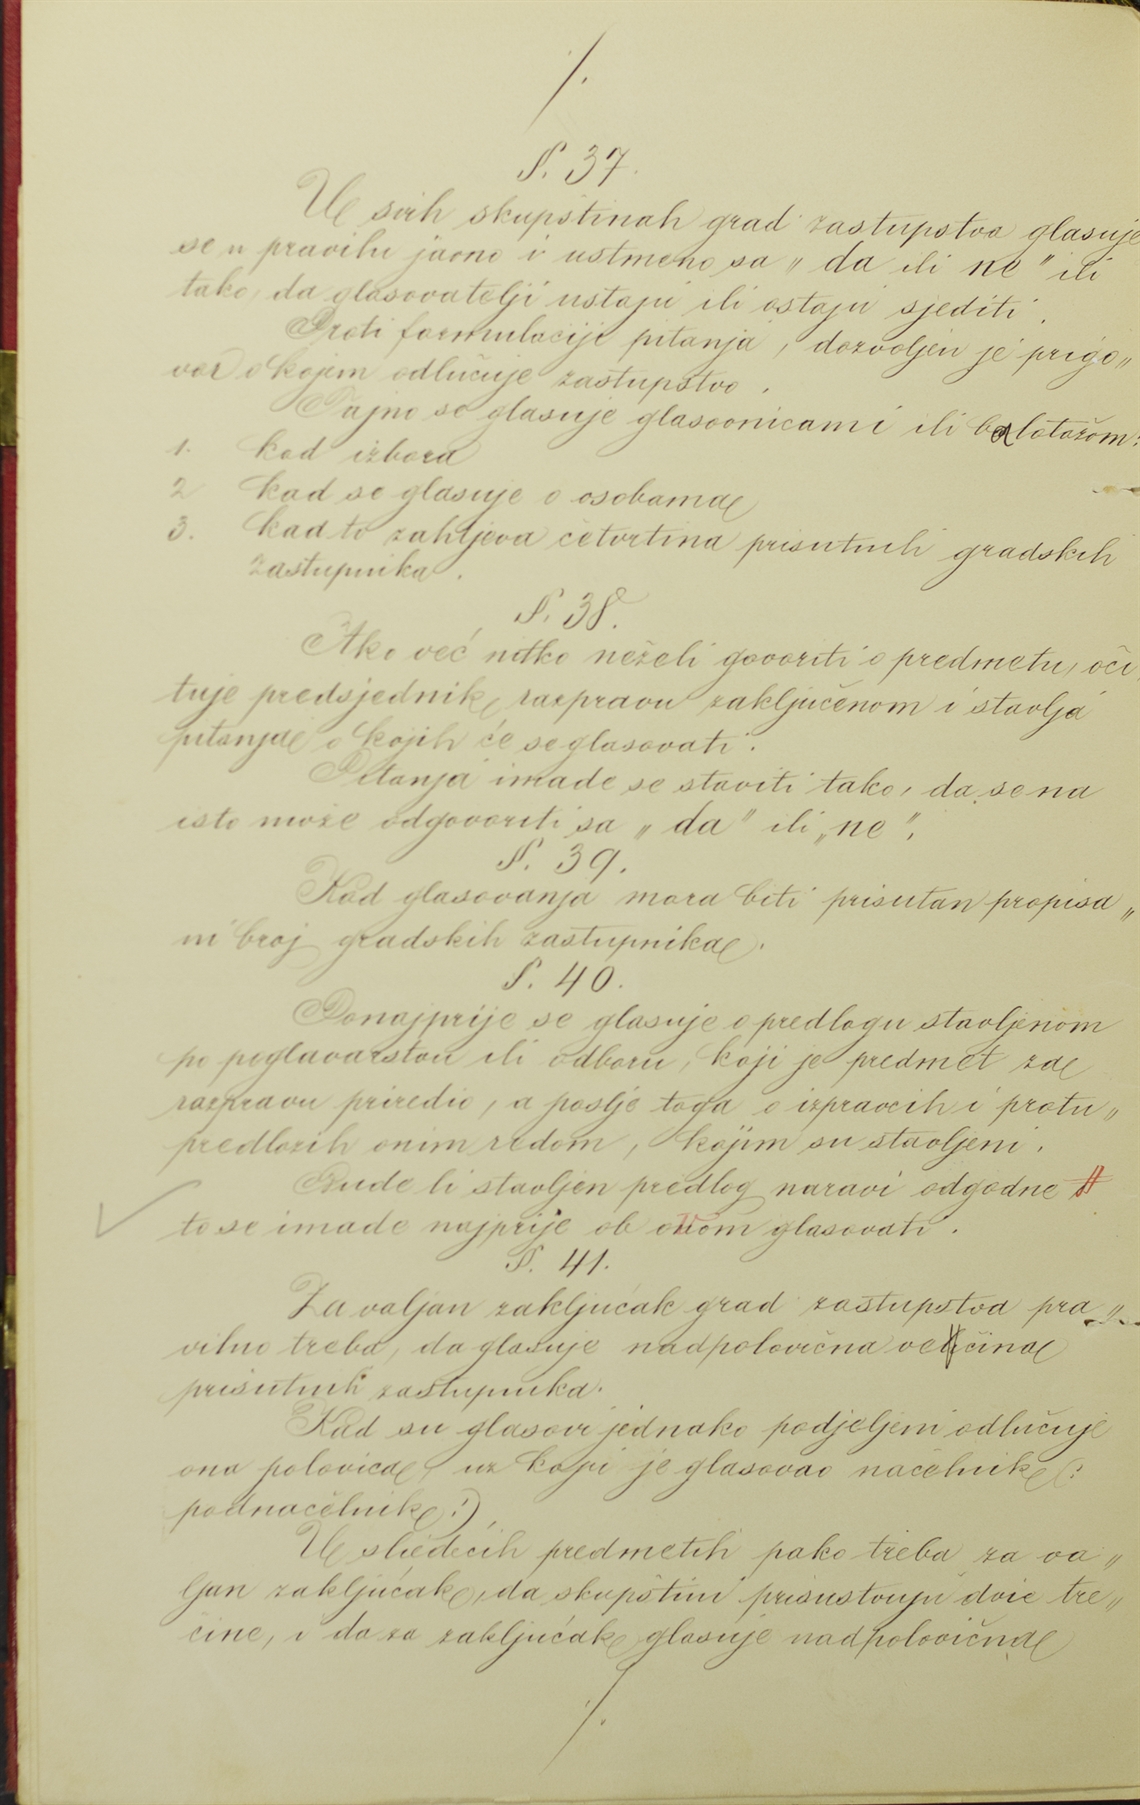 /.
§. 37.
U svih skupštinah grad zastupstva glasuje
se u pravilu javno i ustmeno sa „ da ili ne " ili
tako, da glasovatelji ustaju ili ostaju sjediti.
Proti formulaciji pitanja, dozvoljen je prigo„
vor o kojem odlučuje zastupstvo.
Tajno se glasuje glasovnicami ili balotažom:
1. kod izbora
2 kad se glasuje o osobama
3. kad to zahtjeva četvrtina prisutnih gradskih
zastupnika.
§. 38.
Ako već nitko neželi govoriti o predmetu, oči
tuje predsjednik razpravu zaključenom i stavlja
pitanja o kojih će se glasovati.
Pitanja imade se staviti tako, da se na
isto može odgovoriti sa „ da " ili „ne".
§. 39.
Kod glasovanja mora biti prisutan propisa„
ni broj gradskih zastupnika.
§. 40.
Ponajprije se glasuje o predlogu stavljenom
po poglavarstvu ili odboru, koji je predmet za
razpravu priredio, a poslje toga o izpravcih i protu„
predlozih onim redom, kojim su stavljeni.
Bude li stavljen predlog naravi odgodne
to se imade najprije ob ovom glasovati.
§. 41.
Za valjan zaključak grad zastupstva pra„
vilno treba, da glasuje nadpolovična većina
prisutnih zastupnika.
Kad su glasovi jednako podjeljeni odlučuje
ona polovica, uz koju je glasovao načelnik (:
podnačelnik:)
U sliedećih predmetih pako treba za va„
ljan zaključak, da skupštini prisustvuju dvie tre„
ćine, i da za zaključak glasuje nadpolovična
/.